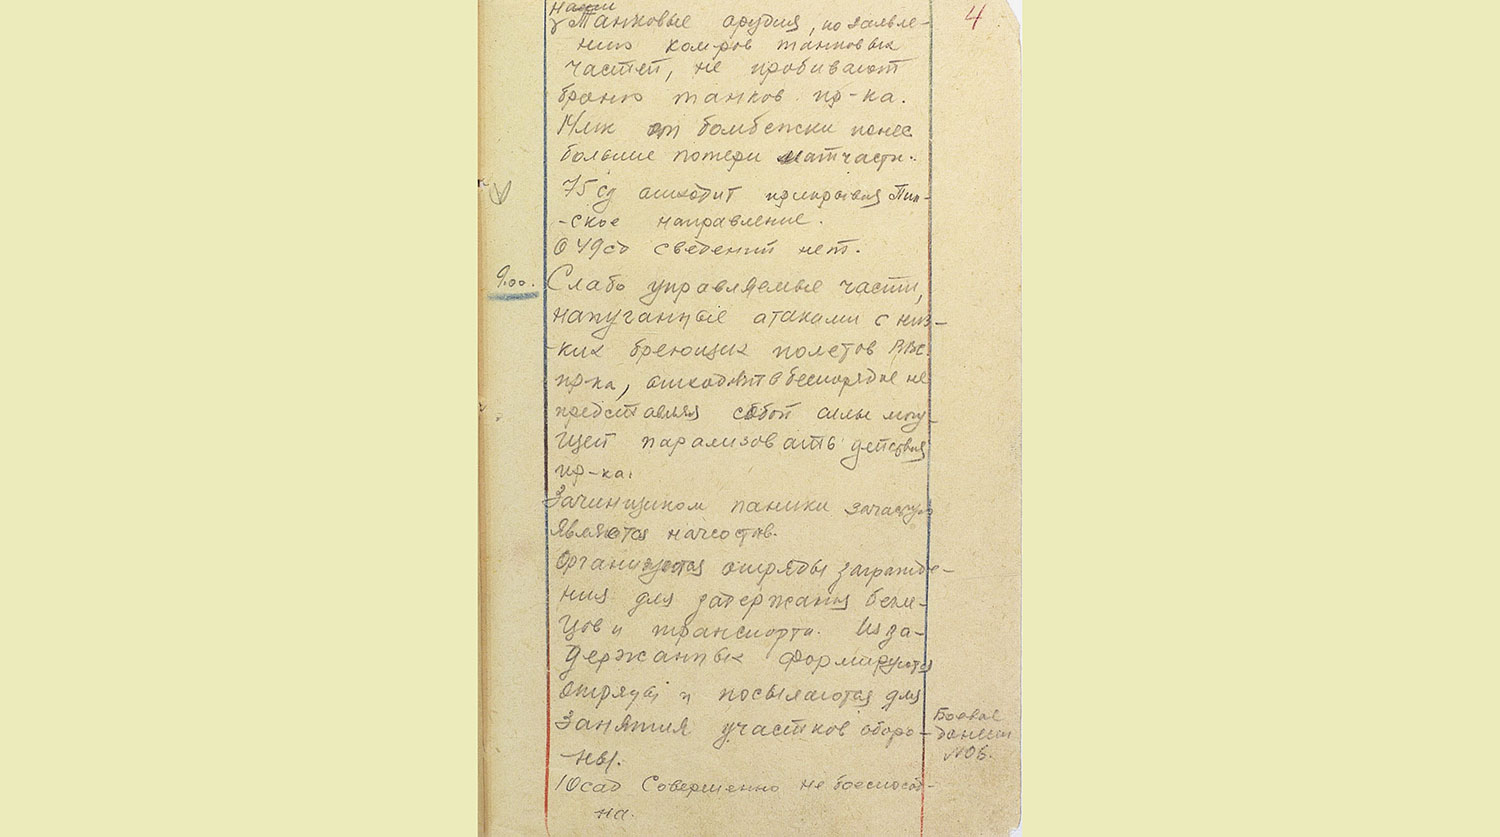 4
Танковые орудия, по заявле-
нию ком-ров танковых
частей, не пробивают
броню танков пр-ка.
14мк от бомбежки понес
большие потери матчасти.
75 сд отходит прикрывая Пин-
-ское направление.
О 49сд сведений нет.
9.00.
Слабо управляемые части,
напуганные атаками с низ-
-ких бреющих полетов
пр-ка, отходят в беспорядке не
представляя собой силы могу-
щей парализовать действия
пр-ка.
Зачинщиком паники зачастую
являются начсостав.
Организуются отряды загражде-
ния для задержания бегле-
цов и транспорта. Из за-
держанных формируются
отряды и посылаются для
занятия участков оборо-
-ны.
Боевое
донесен
№06.
10сад Совершенно не боеспособ-
на.